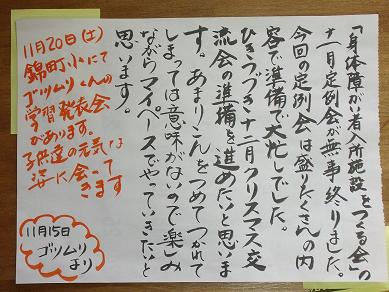 「身体障がい者入所施設をつくる会」の
十一月定例会が無事終りました。
今回の定例会は盛りだくさんの内
容で準備で大忙しでした。
ひきつづき十二月クリスマス交
流会の準備を進めたいと思いま
す。あまりこんをつめてつかれて
しまっては意味がないので楽しみ
ながらマイペースでやっていきたいと
思います♪
11月20日(土)
錦町小にて
ゴツムリくんの
学習発表会
があります。
子供達の元気な
姿に会って
きます
11月15日
ゴツムリ
より